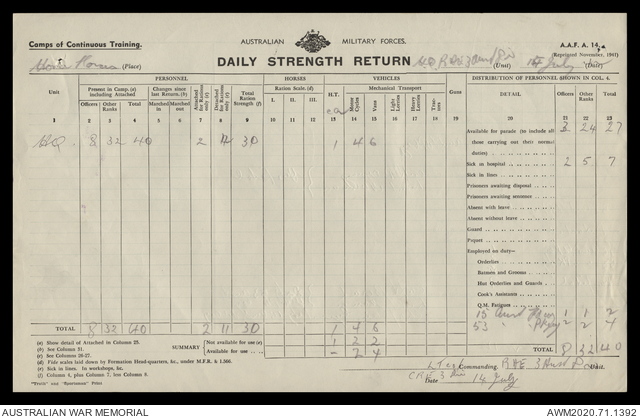 Camps of Continuous Training.
AUSTRALIAN MILITARY FORCES.
A.A.F. A. 14.
(Reprinted November, 1941)
DAILY STRENGTH RETURN
(Place)
(Unit)
14 July
(Date)
PERSONNEL
HORSES
VEHICLES
DISTRIBUTION OF PERSONNEL SHOWN IN COL. 4.
Unit
Present in Camp, (a) including Attached
Changes since last Return. (b)
Attached for Rations only (c)
Detached for Rations only (d)
Total Ration Strength (f)
Ration Scale. (d)
H.T.
Mechanical Transport
Guns
DETAIL
Officers
Other Ranks
Total
Officers
Other Ranks
Total
Marched in
Marched out
I.
II.
III.
Motor Cycles
Vans
Light Lorries
Heavy Lorries
Tractors
1 2 3 4 5 6 7 8 9 10 11 12 13 14 15 16 17 18 19 20 21 22 23
HQ 8 32 40 2 11 30 1 4 6
Available for parade (to include all those carrying out their normal duties) 3 24 27
Sick in hospital 2 5 7
Sick in lines
Prisoners awaiting disposal
Prisoners awaiting sentence
Absent with leave
Absent without leave
Guard
Piquet
Employed on duty—
Orderlies
Batmen and Grooms
Hut Orderlies and Guards
Cook's Assistants
Q.M. Fatigues
15 1 1 2
53 2 2 4
TOTAL 8 32 40 2 11 30 1 4 6
TOTAL 8 32 40
SUMMARY
Not available for use (e) 1 2 2
Available for use - 2 4
(a) Show detail of Attached in Column 25.
(b) See Column 21.
(c) See Columns 26-27.
(d) Fide scales laid down by Formation Head-quarters, &c., under M.F.R. & I.560.
(e) Sick in lines. In workshops, &c.
(f) Column 4, plus Column 7, less Column 8.
"Truth" and "Sportsman" Print
Commanding
CRE 3 Div
Date 14 July
AUSTRALIAN WAR MEMORIAL
AWM2020.71.1392